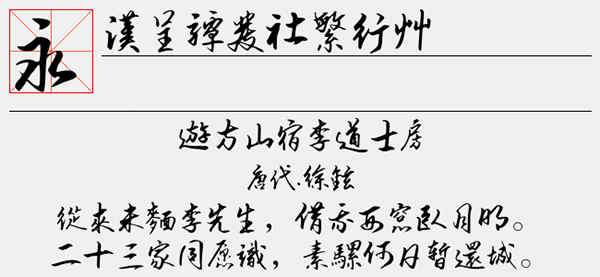 永
漢呈譚發社繁行艸
遊方山宿李道士房
唐代·徐鉉
從來未麵李先生，借我西窗臥月明。
二十三家同愿識，素騾何日暫還城。